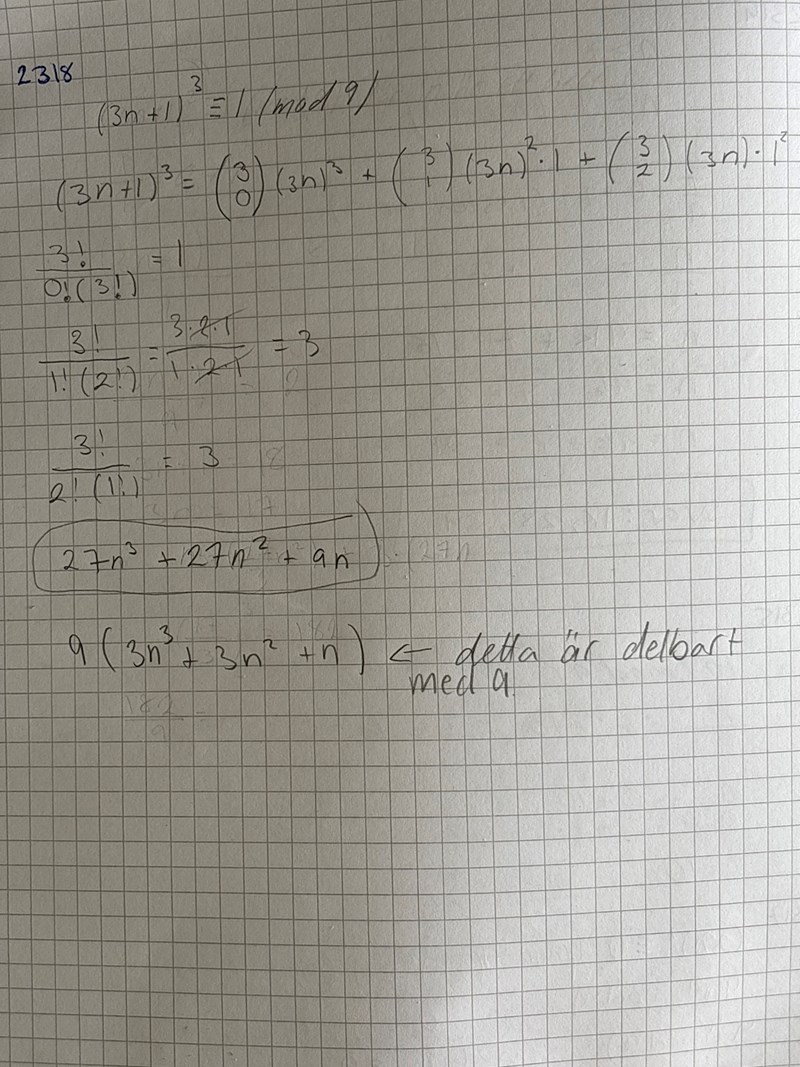 2318
(3n+1)³ ≡ 1 (mod 9)
(3n+1)³ = (3 0)(3n)³ + (3 1)(3n)²·1 + (3 2)(3n)·1²
3!/0!(3!) = 1
3!/1!(2!) = 3·2·1/1·2·1 = 3
3!/2!(1!) = 3
27n³ + 27n² + 9n
9(3n³ + 3n² + n) ← detta är delbart
med 9